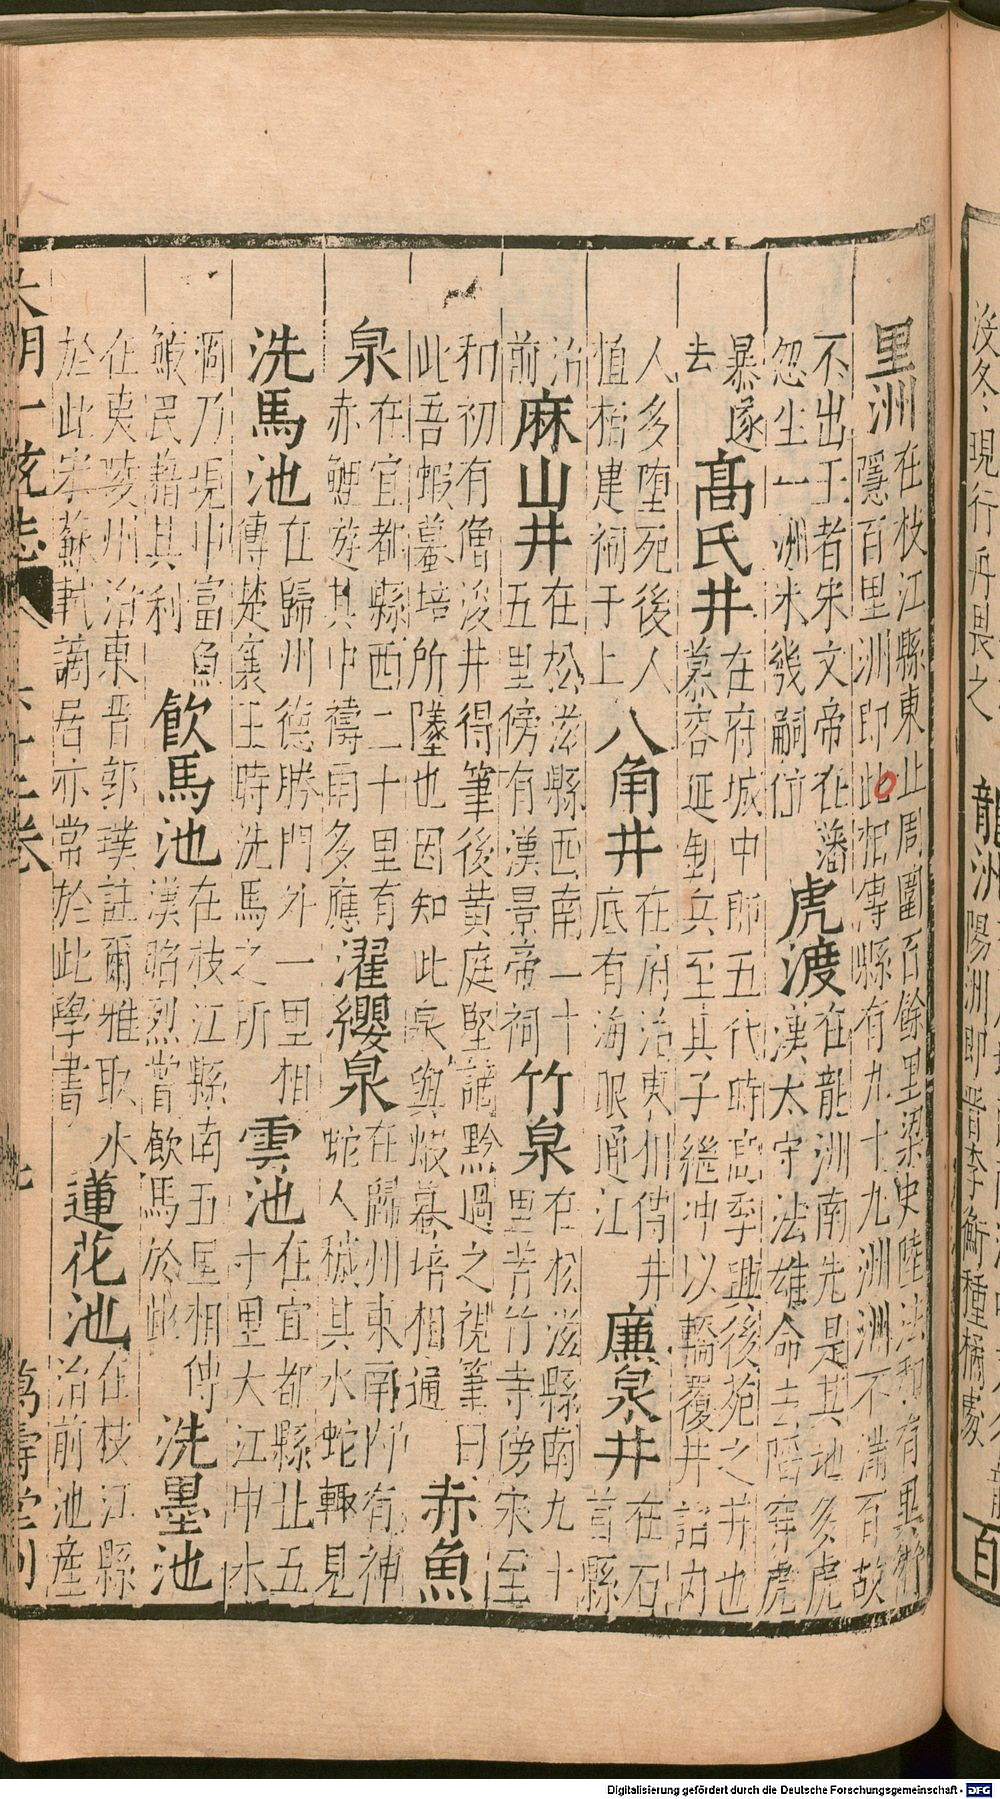 沒冬現行舟畏之
龍洲
陽洲即晉李衡種橘處
百
里洲
在枝江縣東北周圍百餘里梁史陸法和有異術
隱百里洲即此柅傳縣有九十九洲洲不滿百故
不出王者宋文帝在藩
忽生一洲未幾嗣位
虎渡
在龍洲南先是其地多虎
漢太守法雄命去陷穽虎
暴遂
去
高氏井
在府城中郎五代時高季興後苑之井也
慕容延釗兵至其子繼冲以轎覆井詔內
人多墮死後人
植棺建祠于上
八角井
在府治東州傳井
底有海眼通江
廉泉井
在石
首縣
治
前
麻山井
在松滋縣西南一十
五里傍有漢景帝祠
竹泉
在松滋縣南九十
里苦竹寺傍宋至
和初有僧浚井得筆後黃庭堅謫黔過之視筆曰
此吾蝦蟇培所墜也因知此泉與蝦蟇培相通
赤魚
泉
在宜都縣西二十里有
赤鯉遊其中禱雨多應
濯纓泉
在歸州東南內有神
蛇人穢其水蛇輙見
洗馬池
在歸州德勝門外一里相
傳楚襄王時洗馬之所
雲池
在宜都縣北五
十里大江中水
涸乃現中富魚
鰕民藉其利
飲馬池
在枝江縣南五里相傳
漢昭烈嘗飲馬於此
洗墨池
在夷陵州治東晉郭璞註爾雅取水
於此宋蘇軾謫居亦常於此學書
蓮花池
在枝江縣
治前池產
大明一統志 六十二卷 萬壽堂刊
Digitalisierung gefördert durch die Deutsche Forschungsgemeinschaft - DFG